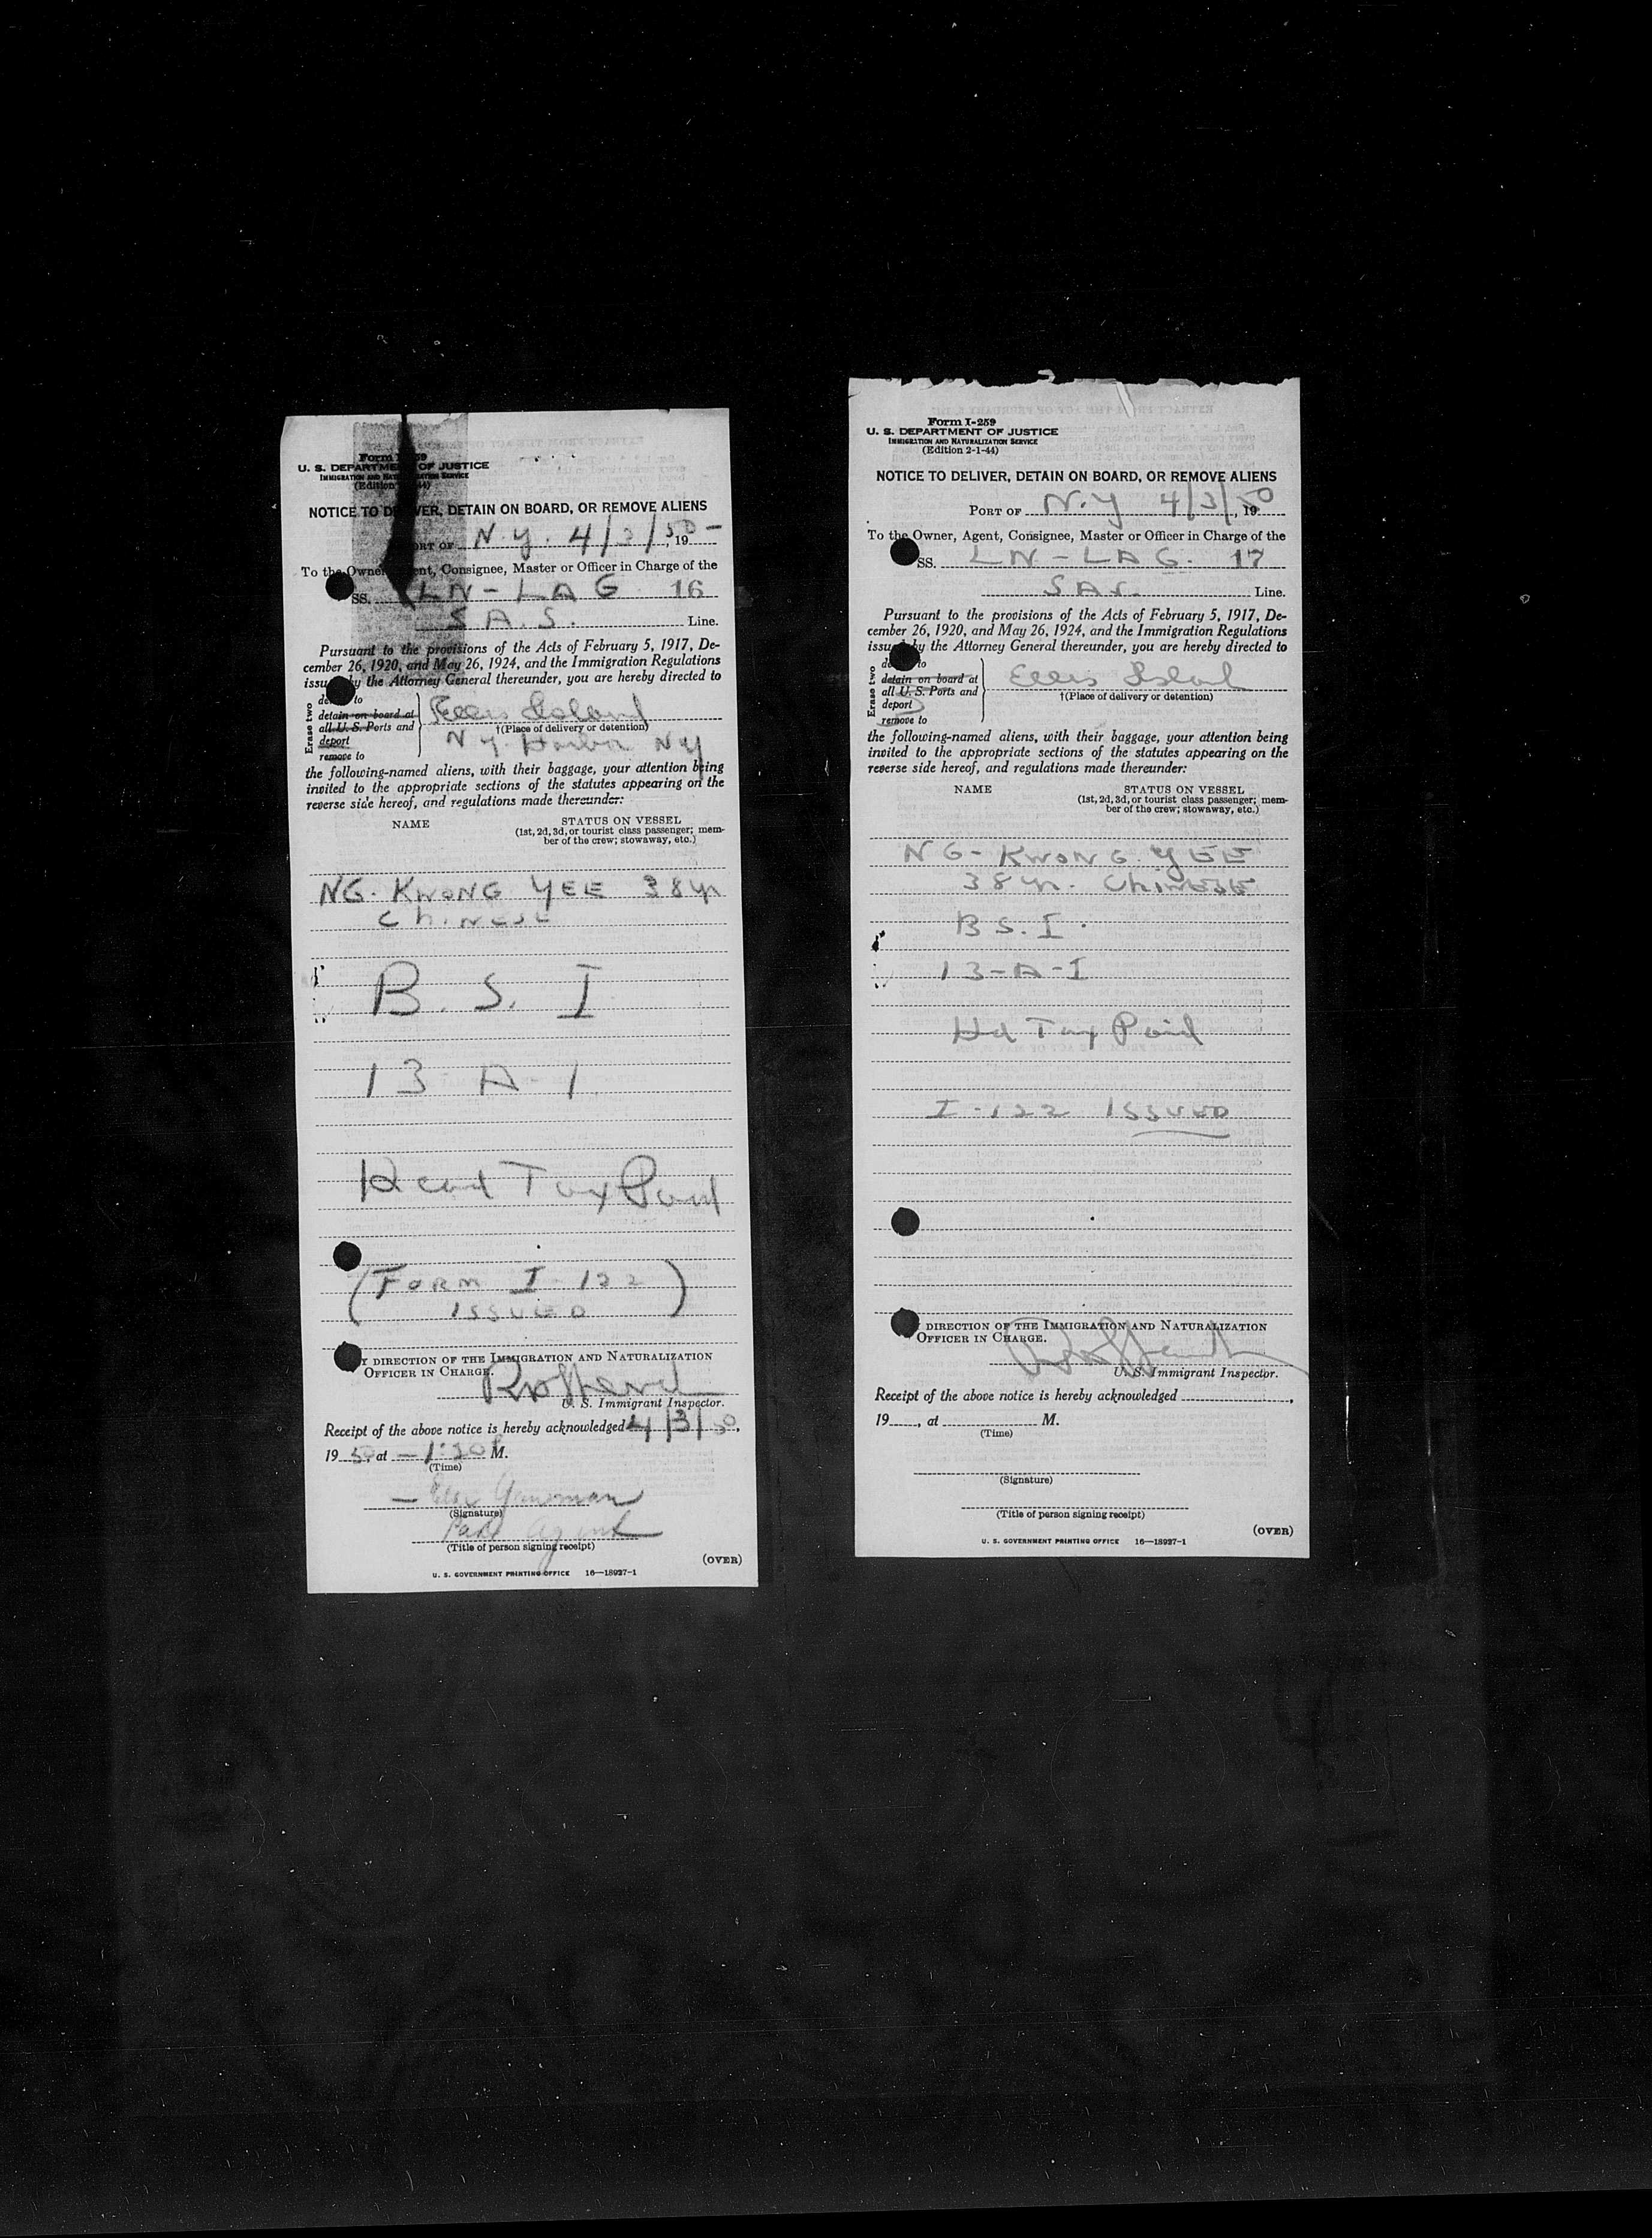 Form I-259
U. S. DEPARTMENT OF JUSTICE
IMMIGRATION AND NATURALIZATION SERVICE
(Edition 2-1-44)
NOTICE TO DELIVER, DETAIN ON BOARD, OR REMOVE ALIENS
PORT OF N.Y. 4/3/50, 19
To the Owner, Agent, Consignee, Master or Officer in Charge of the
SS. LN-LAG 16
S.A.S. Line.
Pursuant to the provisions of the Acts of February 5, 1917, De-
cember 26, 1920, and May 26, 1924, and the Immigration Regulations
issued by the Attorney General thereunder, you are hereby directed to
Erase two
to
detain on board at
all U. S. Ports and
deport
remove to
Ellis Island
†(Place of delivery or detention)
N.Y. Harbor NY
the following-named aliens, with their baggage, your attention being
invited to the appropriate sections of the statutes appearing on the
reverse side hereof, and regulations made thereunder:
NAME STATUS ON VESSEL
(1st, 2d, 3d, or tourist class passenger; mem-
ber of the crew; stowaway, etc.)
NG. KWONG YEE 38 yr
CHINESE
B. S. I
13-A-1
Head Tax Paid
(FORM I-122
ISSUED)
BY DIRECTION OF THE IMMIGRATION AND NATURALIZATION
OFFICER IN CHARGE.
U. S. Immigrant Inspector.
Receipt of the above notice is hereby acknowledged 4/3/50,
1950, at M.
(Time)
(Signature)
Agent
(Title of person signing receipt)
(OVER)
U. S. GOVERNMENT PRINTING OFFICE 16—18927-1
Form I-259
U. S. DEPARTMENT OF JUSTICE
IMMIGRATION AND NATURALIZATION SERVICE
(Edition 2-1-44)
NOTICE TO DELIVER, DETAIN ON BOARD, OR REMOVE ALIENS
PORT OF N.Y 4/3/50, 19
To the Owner, Agent, Consignee, Master or Officer in Charge of the
SS. LN-LAG. 17
SAS. Line.
Pursuant to the provisions of the Acts of February 5, 1917, De-
cember 26, 1920, and May 26, 1924, and the Immigration Regulations
issued by the Attorney General thereunder, you are hereby directed to
Erase two
to
detain on board at
all U. S. Ports and
deport
remove to
Ellis Island
†(Place of delivery or detention)
the following-named aliens, with their baggage, your attention being
invited to the appropriate sections of the statutes appearing on the
reverse side hereof, and regulations made thereunder:
NAME STATUS ON VESSEL
(1st, 2d, 3d, or tourist class passenger; mem-
ber of the crew; stowaway, etc.)
NG-KWONG YEE
38 yr. CHINESE
B S. I.
13-A-I
Hd Tax Paid
I-122 ISSUED
BY DIRECTION OF THE IMMIGRATION AND NATURALIZATION
OFFICER IN CHARGE.
U. S. Immigrant Inspector.
Receipt of the above notice is hereby acknowledged ,
19 , at M.
(Time)
(Signature)
(Title of person signing receipt)
(OVER)
U. S. GOVERNMENT PRINTING OFFICE 16—18927-1